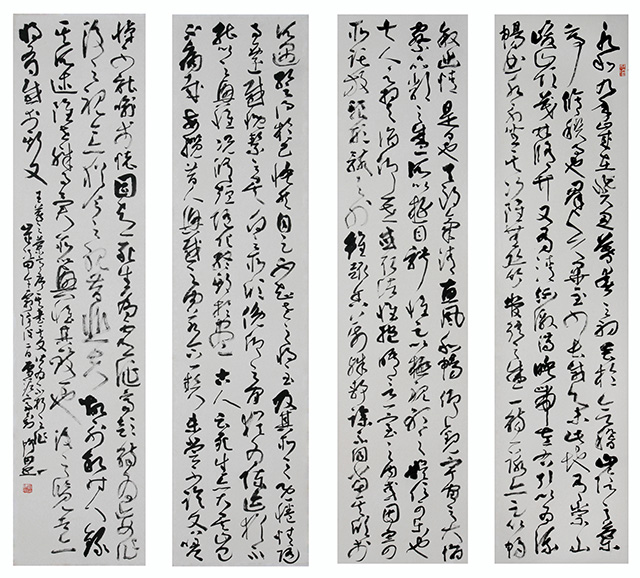 永和九年歲在癸丑暮春之初會於會稽山陰之蘭
亭修禊事也群賢畢至少長咸集此地有崇山
峻領茂林修竹又有清流激湍映帶左右引以為流
觴曲水列坐其次雖無絲竹管弦之盛一觴一詠亦足以暢
敘幽情是日也天朗氣清惠風和暢仰觀宇宙之大俯
察品類之盛所以遊目騁懷足以極視聽之娛信可樂也
夫人之相與俯仰一世或取諸懷抱悟言一室之內或因寄
所託放浪形骸之外雖趣舍萬殊靜躁不同當其欣於
所遇暫得於己快然自足不知老之將至及其所之既倦情隨
事遷感慨係之矣向之所欣俛仰之間以為陳迹猶不
能不以之興懷況修短隨化終期於盡古人云死生亦大矣豈
不痛哉每攬昔人興感之由若合一契未嘗不臨文嗟
悼不能喻之於懷固知一死生為虛誕齊彭殤為妄作
後之視今亦由今之視昔悲夫故列敘時人錄
其所述雖世殊事異所以興懷其致一也後之覽者亦
將有感於斯文